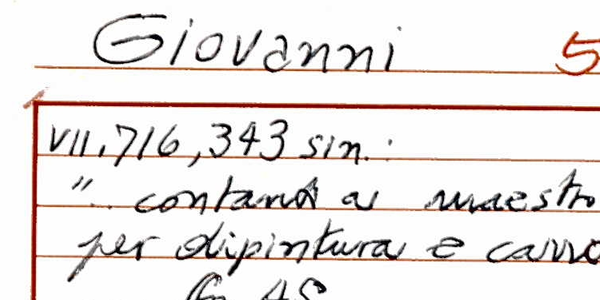 Giovanni 5
VII.716,343 sin.:
"..contanti a maestro
per dipintura e